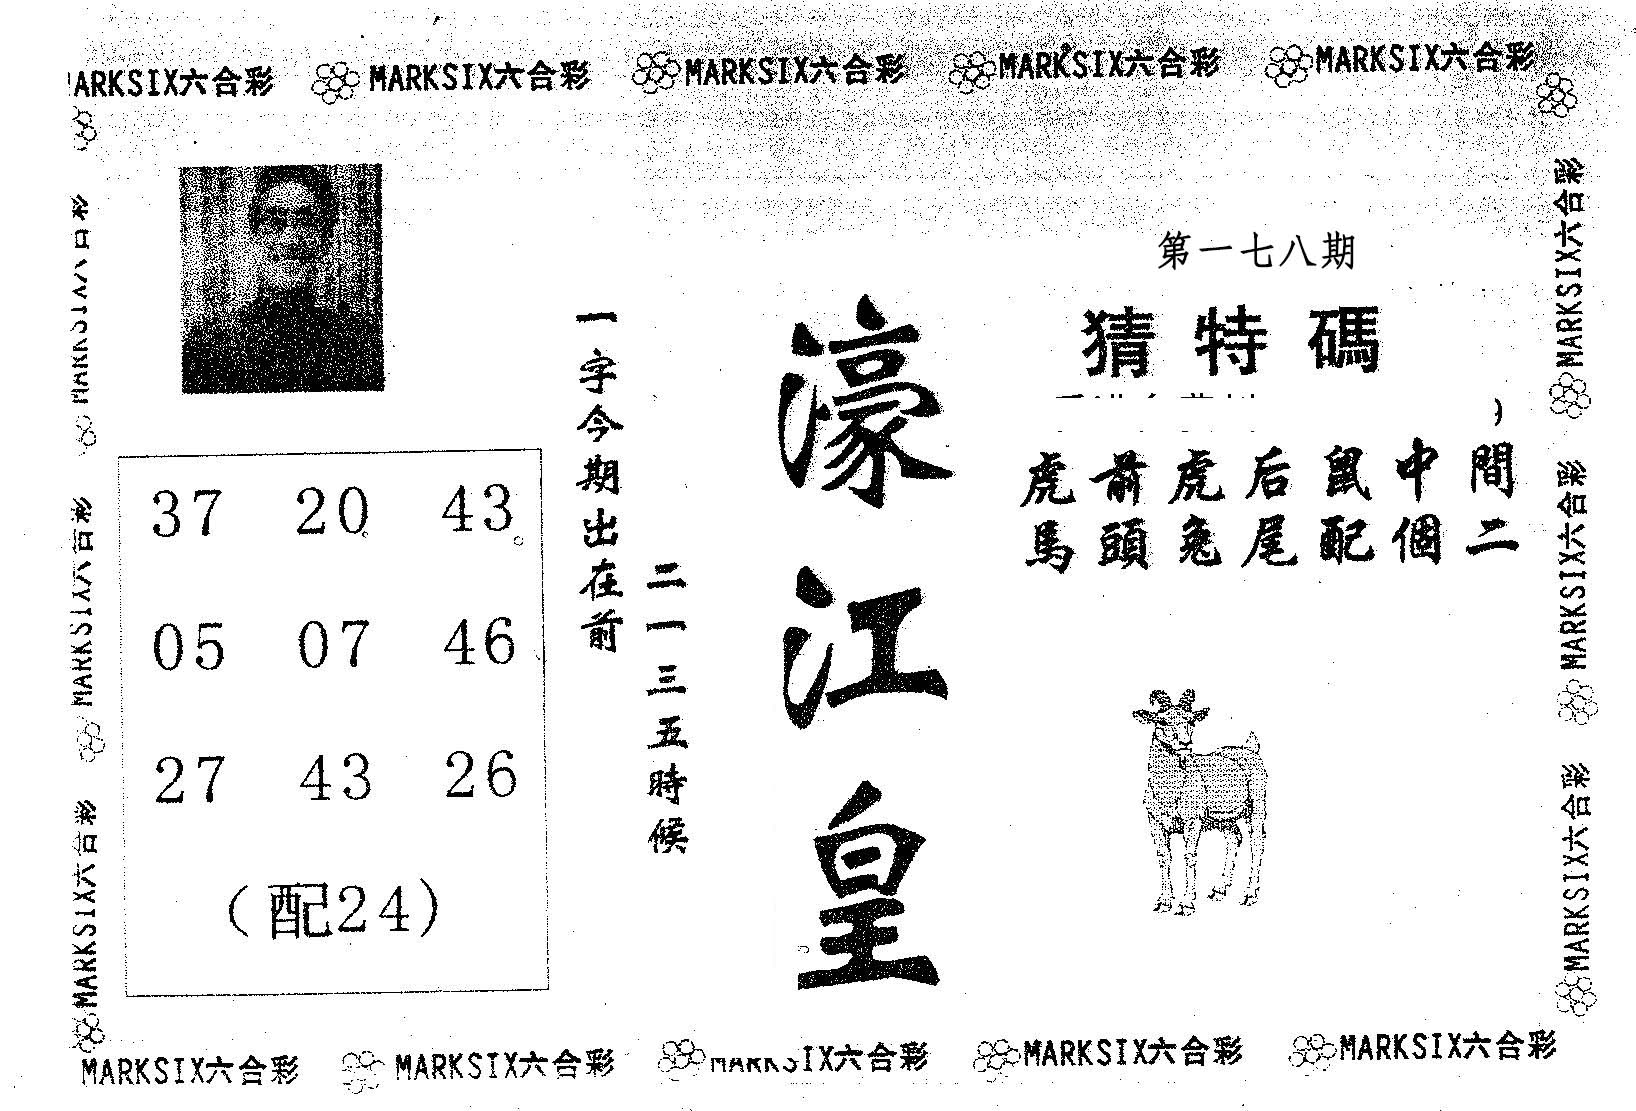 MARKSIX六合彩 MARKSIX六合彩 MARKSIX六合彩 MARKSIX六合彩 MARKSIX六合彩
第一七八期
猜特碼
虎前虎后鼠中間
馬頭兔尾配個二
濠江皇
一字今期出在前
二一三五時候
37 20 43
05 07 46
27 43 26
(配24)
MARKSIX六合彩
MARKSIX六合彩
MARKSIX六合彩
MARKSIX六合彩
MARKSIX六合彩
MARKSIX六合彩
MARKSIX六合彩 MARKSIX六合彩 MARKSIX六合彩 MARKSIX六合彩 MARKSIX六合彩